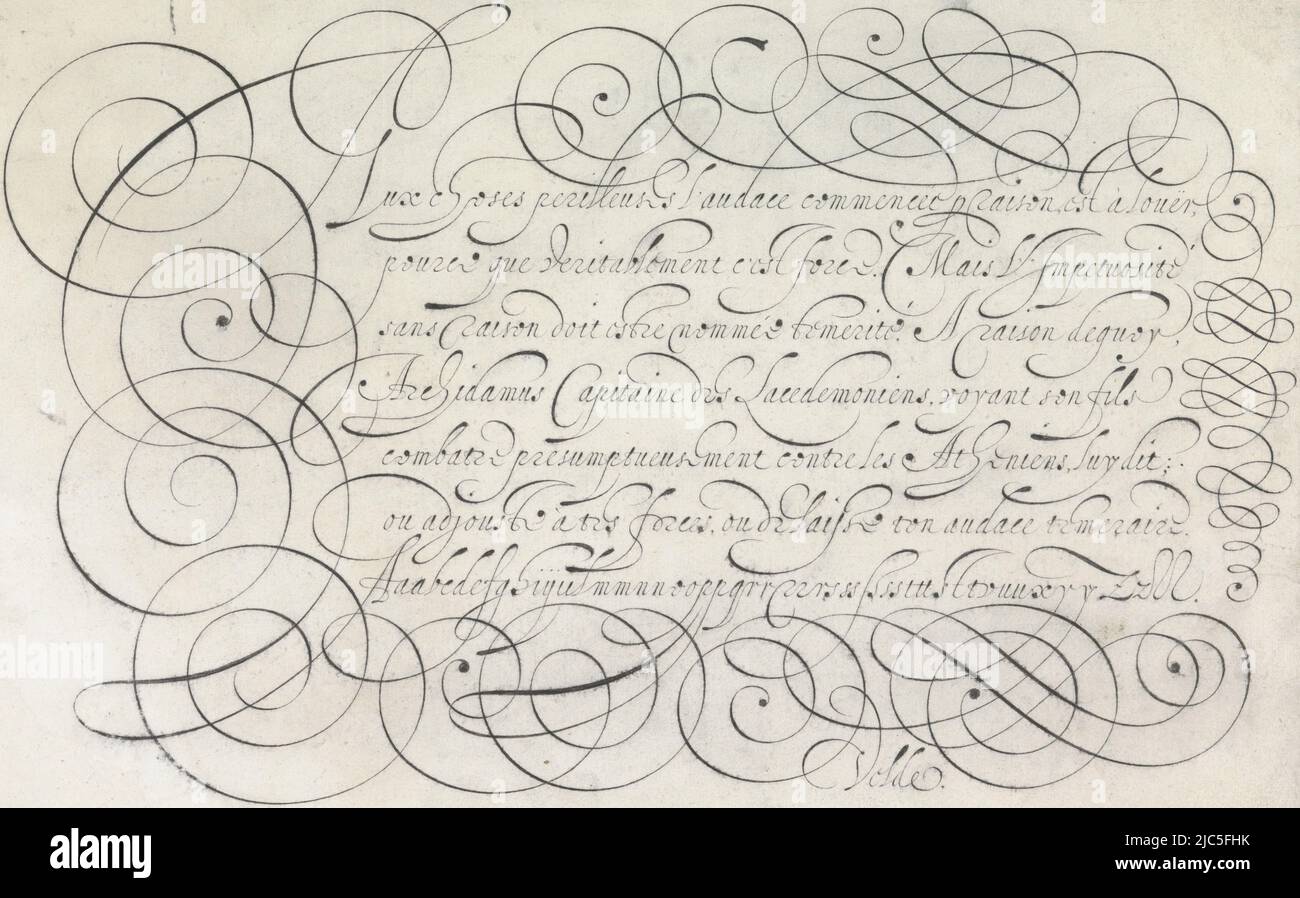 Aux choses perilleuses l'audace commencée p raison, est à louër,
pource que veritablement c'est force. Mais l'Impetuosité
sans raison doit estre nommée temerité. A raison dequoy,
Archidamus Capitaine des Lacedemoniens, voyant son fils
combatre presumptueusement contre les Atheniens, luy dit:
ou adjouste à tes forces, ou delaisse ton audace temeraire.
Velde.
alamy
Image ID: 2JC5FHK
www.alamy.com